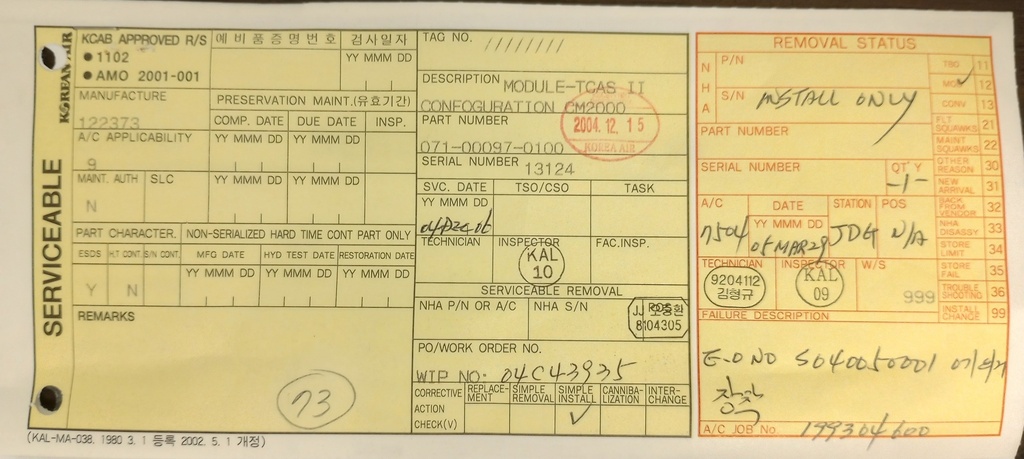 SERVICEABLE
KOREAN AIR
KCAB APPROVED R/S
● 1102
● AMO 2001-001
예 비 품 증 명 번 호
검 사 일 자
YY MMM DD
MANUFACTURE
122373
PRESERVATION MAINT.(유효기간)
COMP. DATE DUE DATE INSP.
A/C APPLICABILITY
9
YY MMM DD YY MMM DD
MAINT. AUTH SLC
N
YY MMM DD YY MMM DD
PART CHARACTER. NON-SERIALIZED HARD TIME CONT PART ONLY
ESDS H.T CONT. S/N CONT. MFG DATE HYD TEST DATE RESTORATION DATE
Y N
YY MMM DD YY MMM DD YY MMM DD
REMARKS
73
(KAL-MA-038. 1980 3. 1 등록 2002. 5. 1 개정)
TAG NO. ////////
DESCRIPTION MODULE-TCAS II
CONFOGURATION CM2000
PART NUMBER
071-00097-0100
2004. 12. 15
KOREA AIR
SERIAL NUMBER 13124
SVC. DATE TSO/CSO TASK
YY MMM DD
TECHNICIAN INSPECTOR FAC.INSP.
KAL
10
SERVICEABLE REMOVAL
NHA P/N OR A/C NHA S/N POS
8104305
PO/WORK ORDER NO.
WIP NO: 04C43935
CORRECTIVE ACTION CHECK(V)
REPLACE-MENT SIMPLE REMOVAL SIMPLE INSTALL CANNIBA-LIZATION INTER-CHANGE
✓
REMOVAL STATUS
NHA
P/N
S/N INSTALL ONLY
PART NUMBER
SERIAL NUMBER QT'Y
-1-
A/C DATE STATION POS
7504 YY MMM DD JDG N/A
TECHNICIAN INSPECTOR W/S
9204112
김형규
KAL
09
999
TBO 11
✓ 12
CONV 13
FLT SQUAWKS 21
MAINT SQUAWKS 22
OTHER REASON 30
NEW ARRIVAL 31
BACK FROM VENDOR 32
NHA DISASSY 33
STORE LIMIT 34
STORE FAIL 35
TROUBLE SHOOTING 36
INSTALL CHANGE 99
FAILURE DESCRIPTION
E.O NO S040050001
장착
A/C JOB No. 199304600